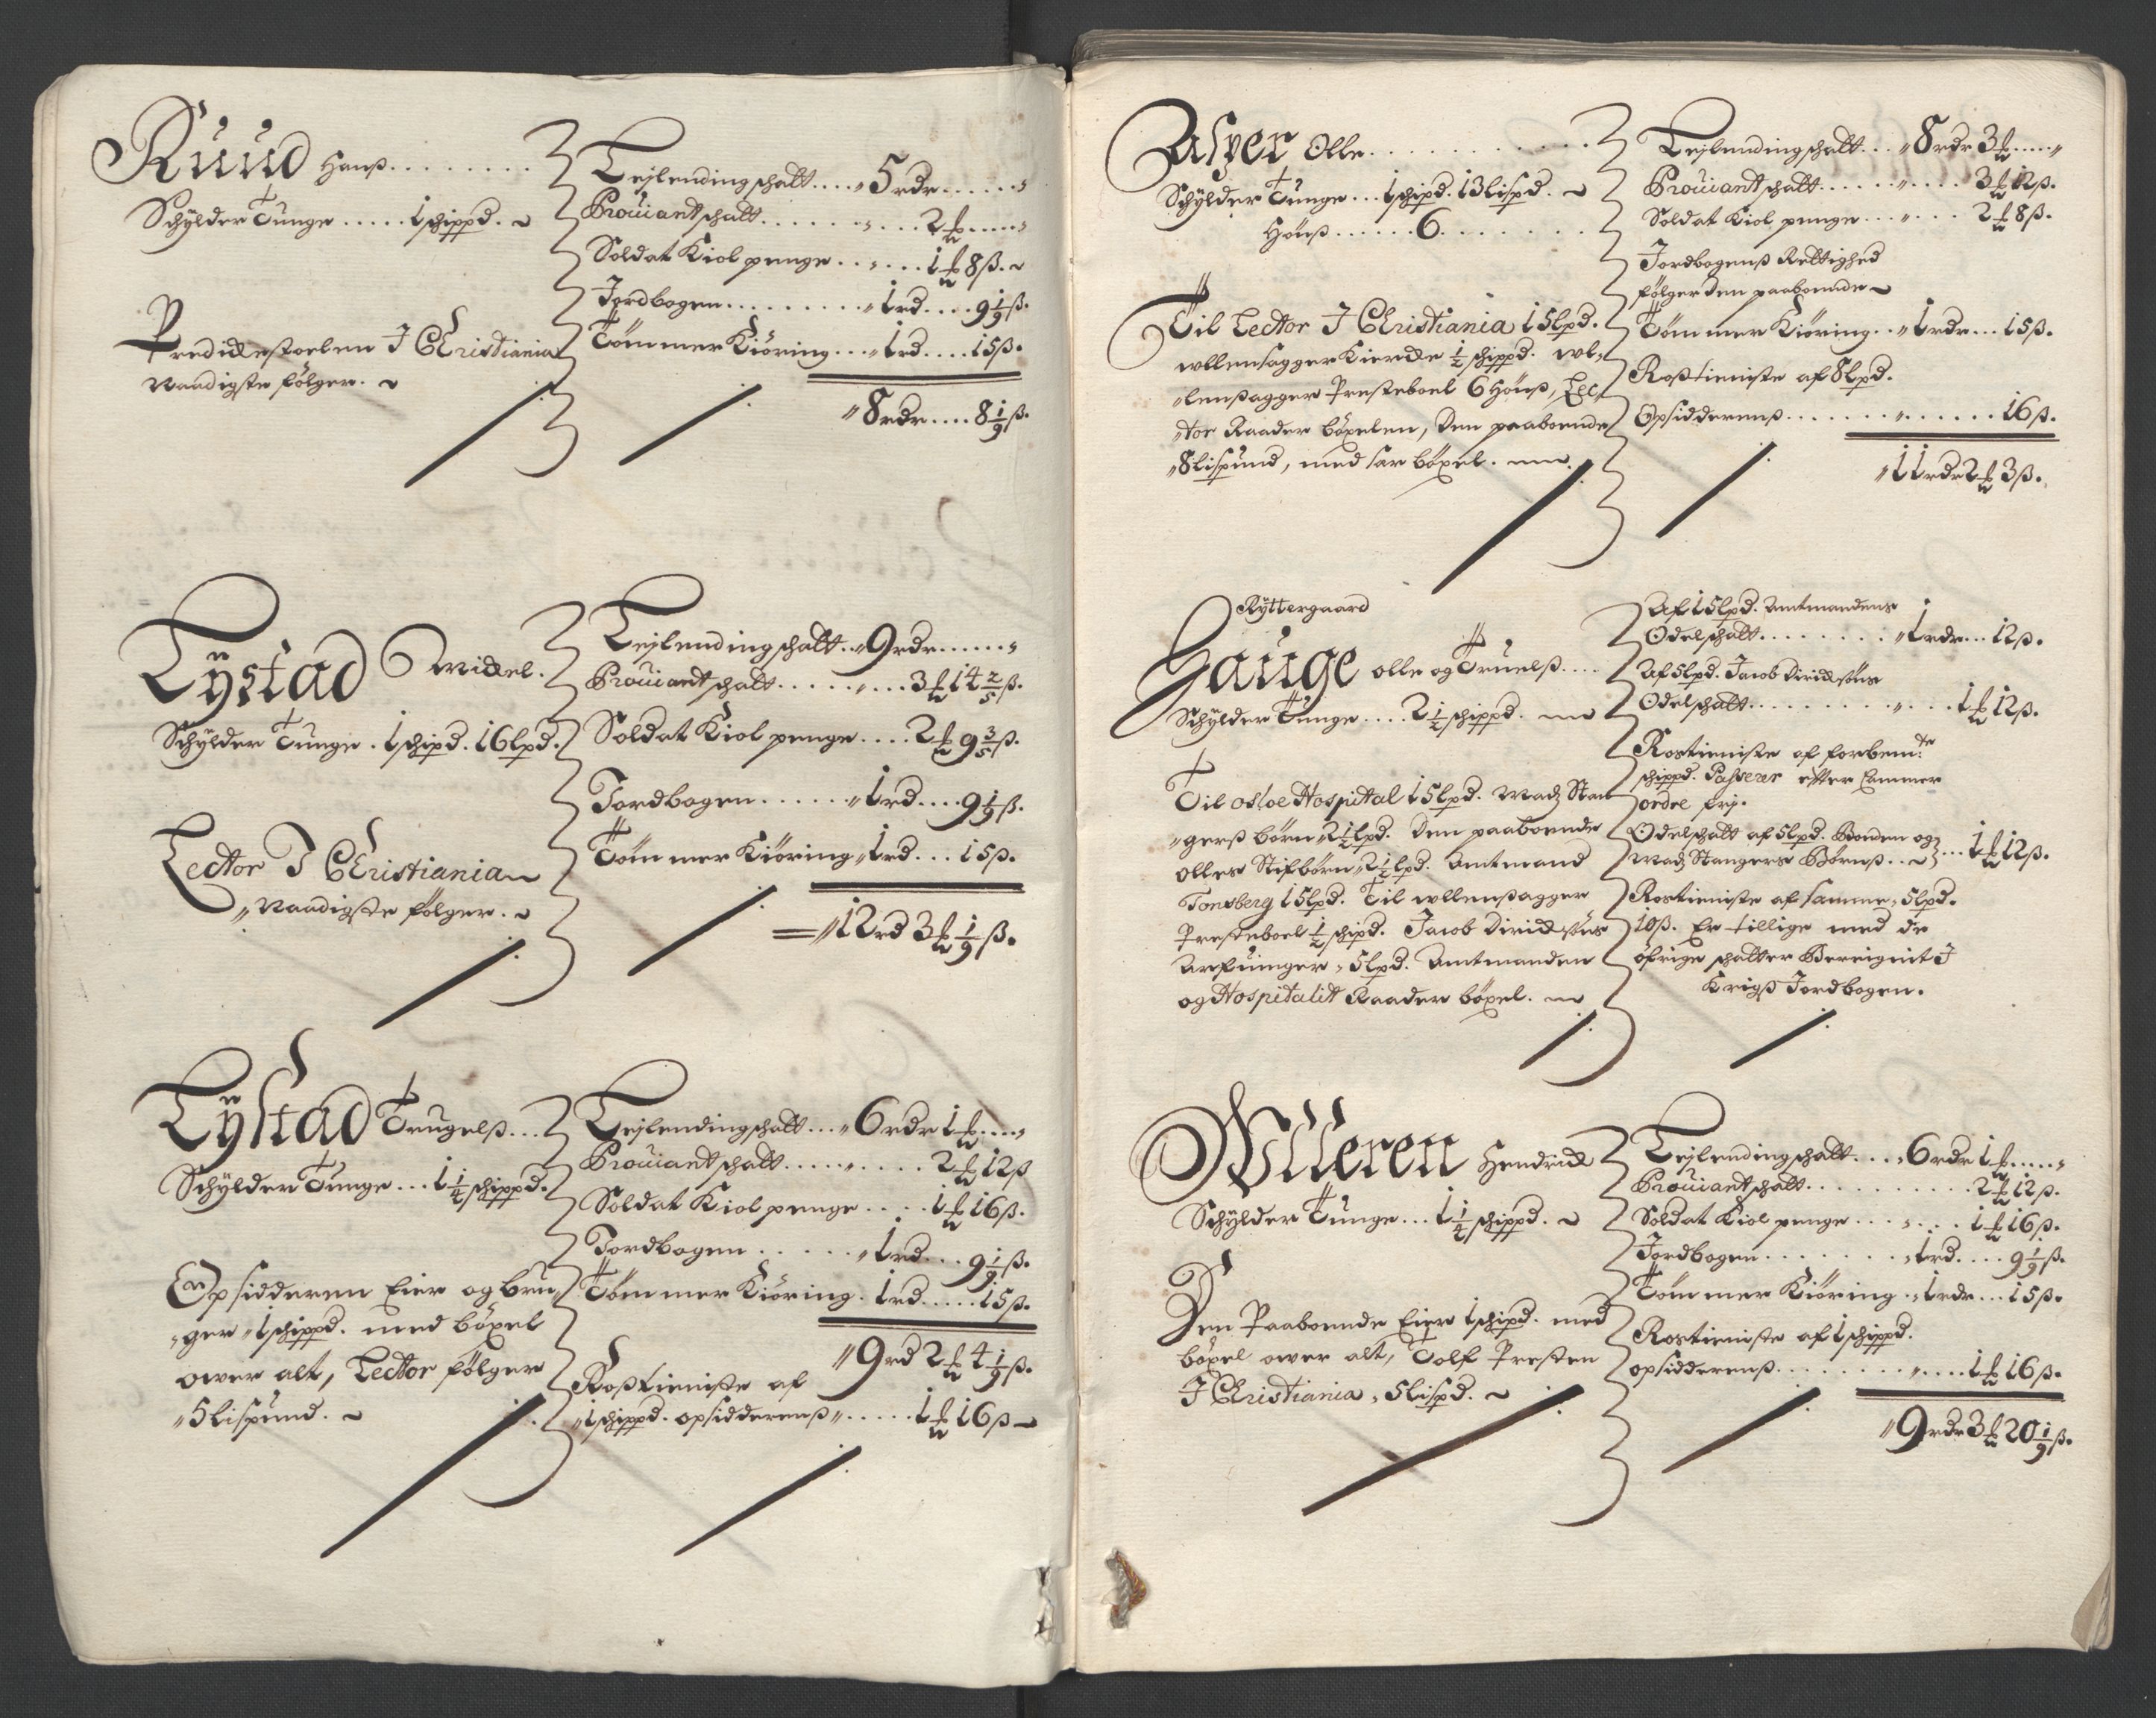 Ruud Hanß
Schylder Tunge ..... 1 schippd.
Predickestoelen I Christiania
Naadigste følger.
Lejlendingschatt .... 5 rdr
Proviantschatt ........ 2 ℔
Soldat Kiol penge ..... 1 ℔ 8 ß.
Jordbogen ......... 1 rd .... 9 1/9 ß.
Tømmer Kiøring ... 1 rd .... 15 ß.
8 rdr .... 8 1/9 ß.
Tÿstad Mickel.
Schylder Tunge . 1 schipd. 16 lpd.
Lector I Christiania
Naadigste følger.
Lejlendingschatt .. 9 rdr
Proviantschatt ........ 3 ℔ 14 2/5 ß.
Soldat Kiol penge .... 2 ℔ 9 3/5 ß.
Jordbogen ...... 1 rd .... 9 1/9 ß.
Tømmer Kiøring 1 rd ... 15 ß.
12 rd 3 ℔ 1/9 ß.
Tÿstad Trugelß ...
Schylder Tunge ... 1 1/4 schippd.
Opsidderen Eier og bru
ger 1 schippd. med böxel
over alt, Lector følger
5 lispund.
Lejlendingschatt ... 6 rdr 1 ℔
Proviantschatt ........ 2 ℔ 12 ß
Soldat Kiol penge .... 1 ℔ 16 ß.
Jordbogen ..... 1 rd ... 9 1/9 ß.
Tømmer Kiøring . 1 rd ..... 15 ß.
9 rd 2 ℔ 4 1/9 ß.
Roßtieniste af
1 schippd. opsidderenß ..... 1 ℔ 16 ß
Asper Olle
Schylder Tunge ... 1 schipd. 13 lispd.
Hönß ...... 6
Til Lector I Christiania 15 lpd.
Ullensagger Kiercke 1/2 schippd. Ul
lenßagger Presteboel 6 Hönß, Lec
tor Raader böxelen, Den paaboende
8 lispund, med sær böxel.
Lejlendingschatt ... 8 rdr 3 ℔
Proviantschatt ........ 3 ℔ 12 ß.
Soldat Kiol penge ..... 2 ℔ 8 ß.
Jordbogenß Rettighed
følger den paaboende
Tømmer Kiøring .. 1 rdr ... 15 ß.
Roßtieniste af 8 lpd.
Opsidderenß ............ 16 ß.
11 rdr 2 ℔ 3 ß.
Ryttergaard
Hauge Olle og Truelß
Schylder Tunge .... 2 1/2 schippd.
Til Osloe Hospital 15 lpd. Madz Stan
gerß börn 2 1/2 lpd. Den paaboende
Olles Stifbörn 2 1/2 lpd. Amtmand
Tonsberg 15 lpd. Til Ullenßagger
Presteboel 1/2 schipd. Jacob Dirick søns
Arfvinger 5 lpd. Amtmanden
og Hospitalit Raader böxel.
Af 15 lpd. Amtmandens
Odelschatt ........ 1 rdr ... 12 ß.
Af 5 lpd. Jacob Dirick søns
Odelschatt ........... 1 ℔ 12 ß.
Rostieniste af forbemte
schippd. Passerer efter Cammer
ordre frj.
Odelschatt af 5 lpd. Bonden og
Madz Stangers Børnß ... 1 ℔ 12 ß.
Rostieniste af samme 5 lpd.
10 ß. Er tillige med de
öfrige schatter Bereignit I
Krigß Jordbogen.
Wlleren Hendrick
Schylder Tunge ... 1 1/4 schippd.
Den Paaboende Eier 1 schipd. med
böxel over alt, Tolf Presten
I Christiania, 5 lispd.
Lejlendingschatt .... 6 rdr 1 ℔
Proviantschatt .......... 2 ℔ 12 ß.
Soldat Kiol penge ..... 1 ℔ 16 ß.
Jordbogen ....... 1 rd .... 9 1/9 ß.
Tømmer Kiøring .. 1 rdr ... 15 ß.
Rostieniste af 1 schippd.
opsidderenß ......... 1 ℔ 16 ß.
9 rdr 3 ℔ 20 1/9 ß.